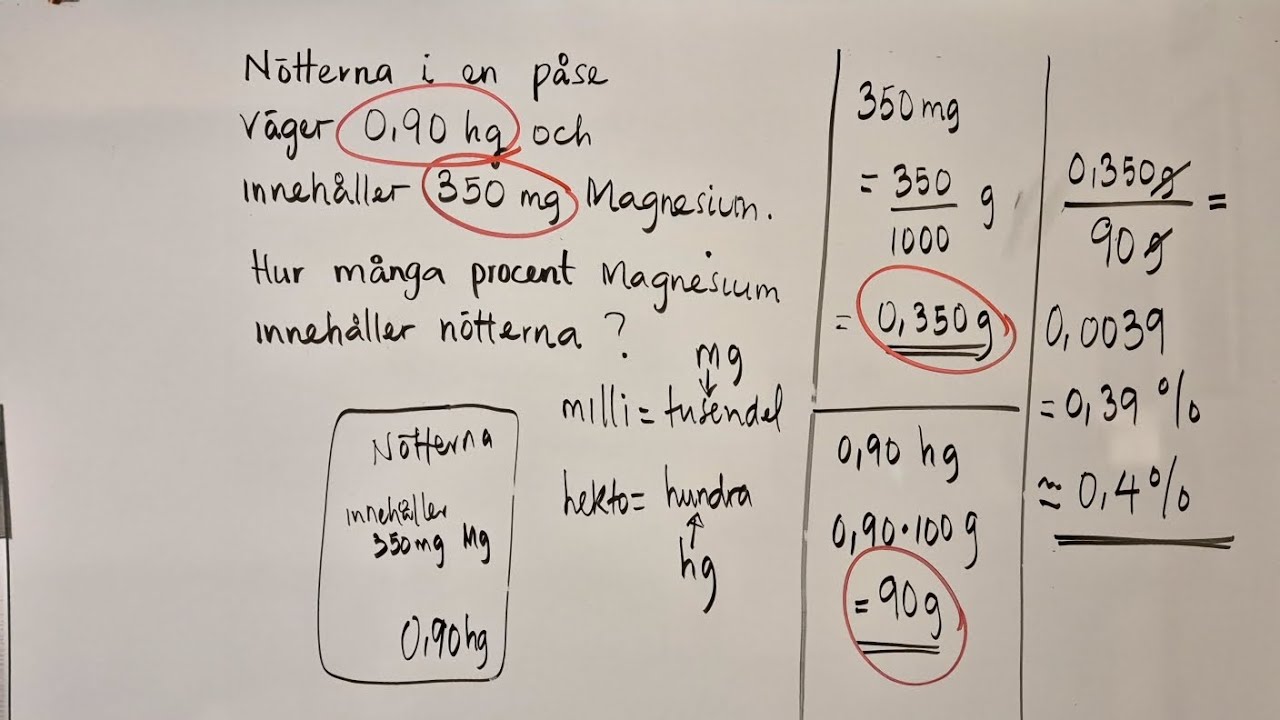 Nötterna i en påse
väger 0,90 hg och
innehåller 350 mg Magnesium.
Hur många procent Magnesium
innehåller nötterna ?
mg
↓
milli = tusendel
hekto = hundra
↑
hg
Nötterna
innehåller
350mg Mg
0,90 hg
350 mg
= 350
1000 g
= 0,350 g
0,90 hg
0,90 · 100 g
= 90 g
0,350g
90 g =
0,0039
= 0,39 %
≈ 0,4 %